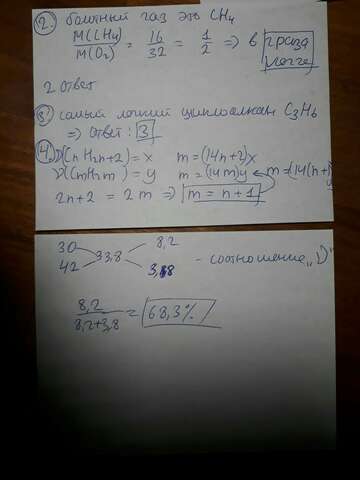 2. болотный газ это CH4
M(CH4)/M(O2) = 16/32 = 1/2 => в 2 раза легче
2 ответ
3. самый легкий циклоалкан C3H6
=> ответ: 3
4. ν(CnH2n+2) = x m = (14n+2)x
ν(CmH2m) = y m = (14m)y m = (14(n+1))y
2n+2 = 2m => m = n+1
30 8,2
33,8 - соотношение „ν"
42 3,8
8,2/(8,2+3,8) = 68,3%